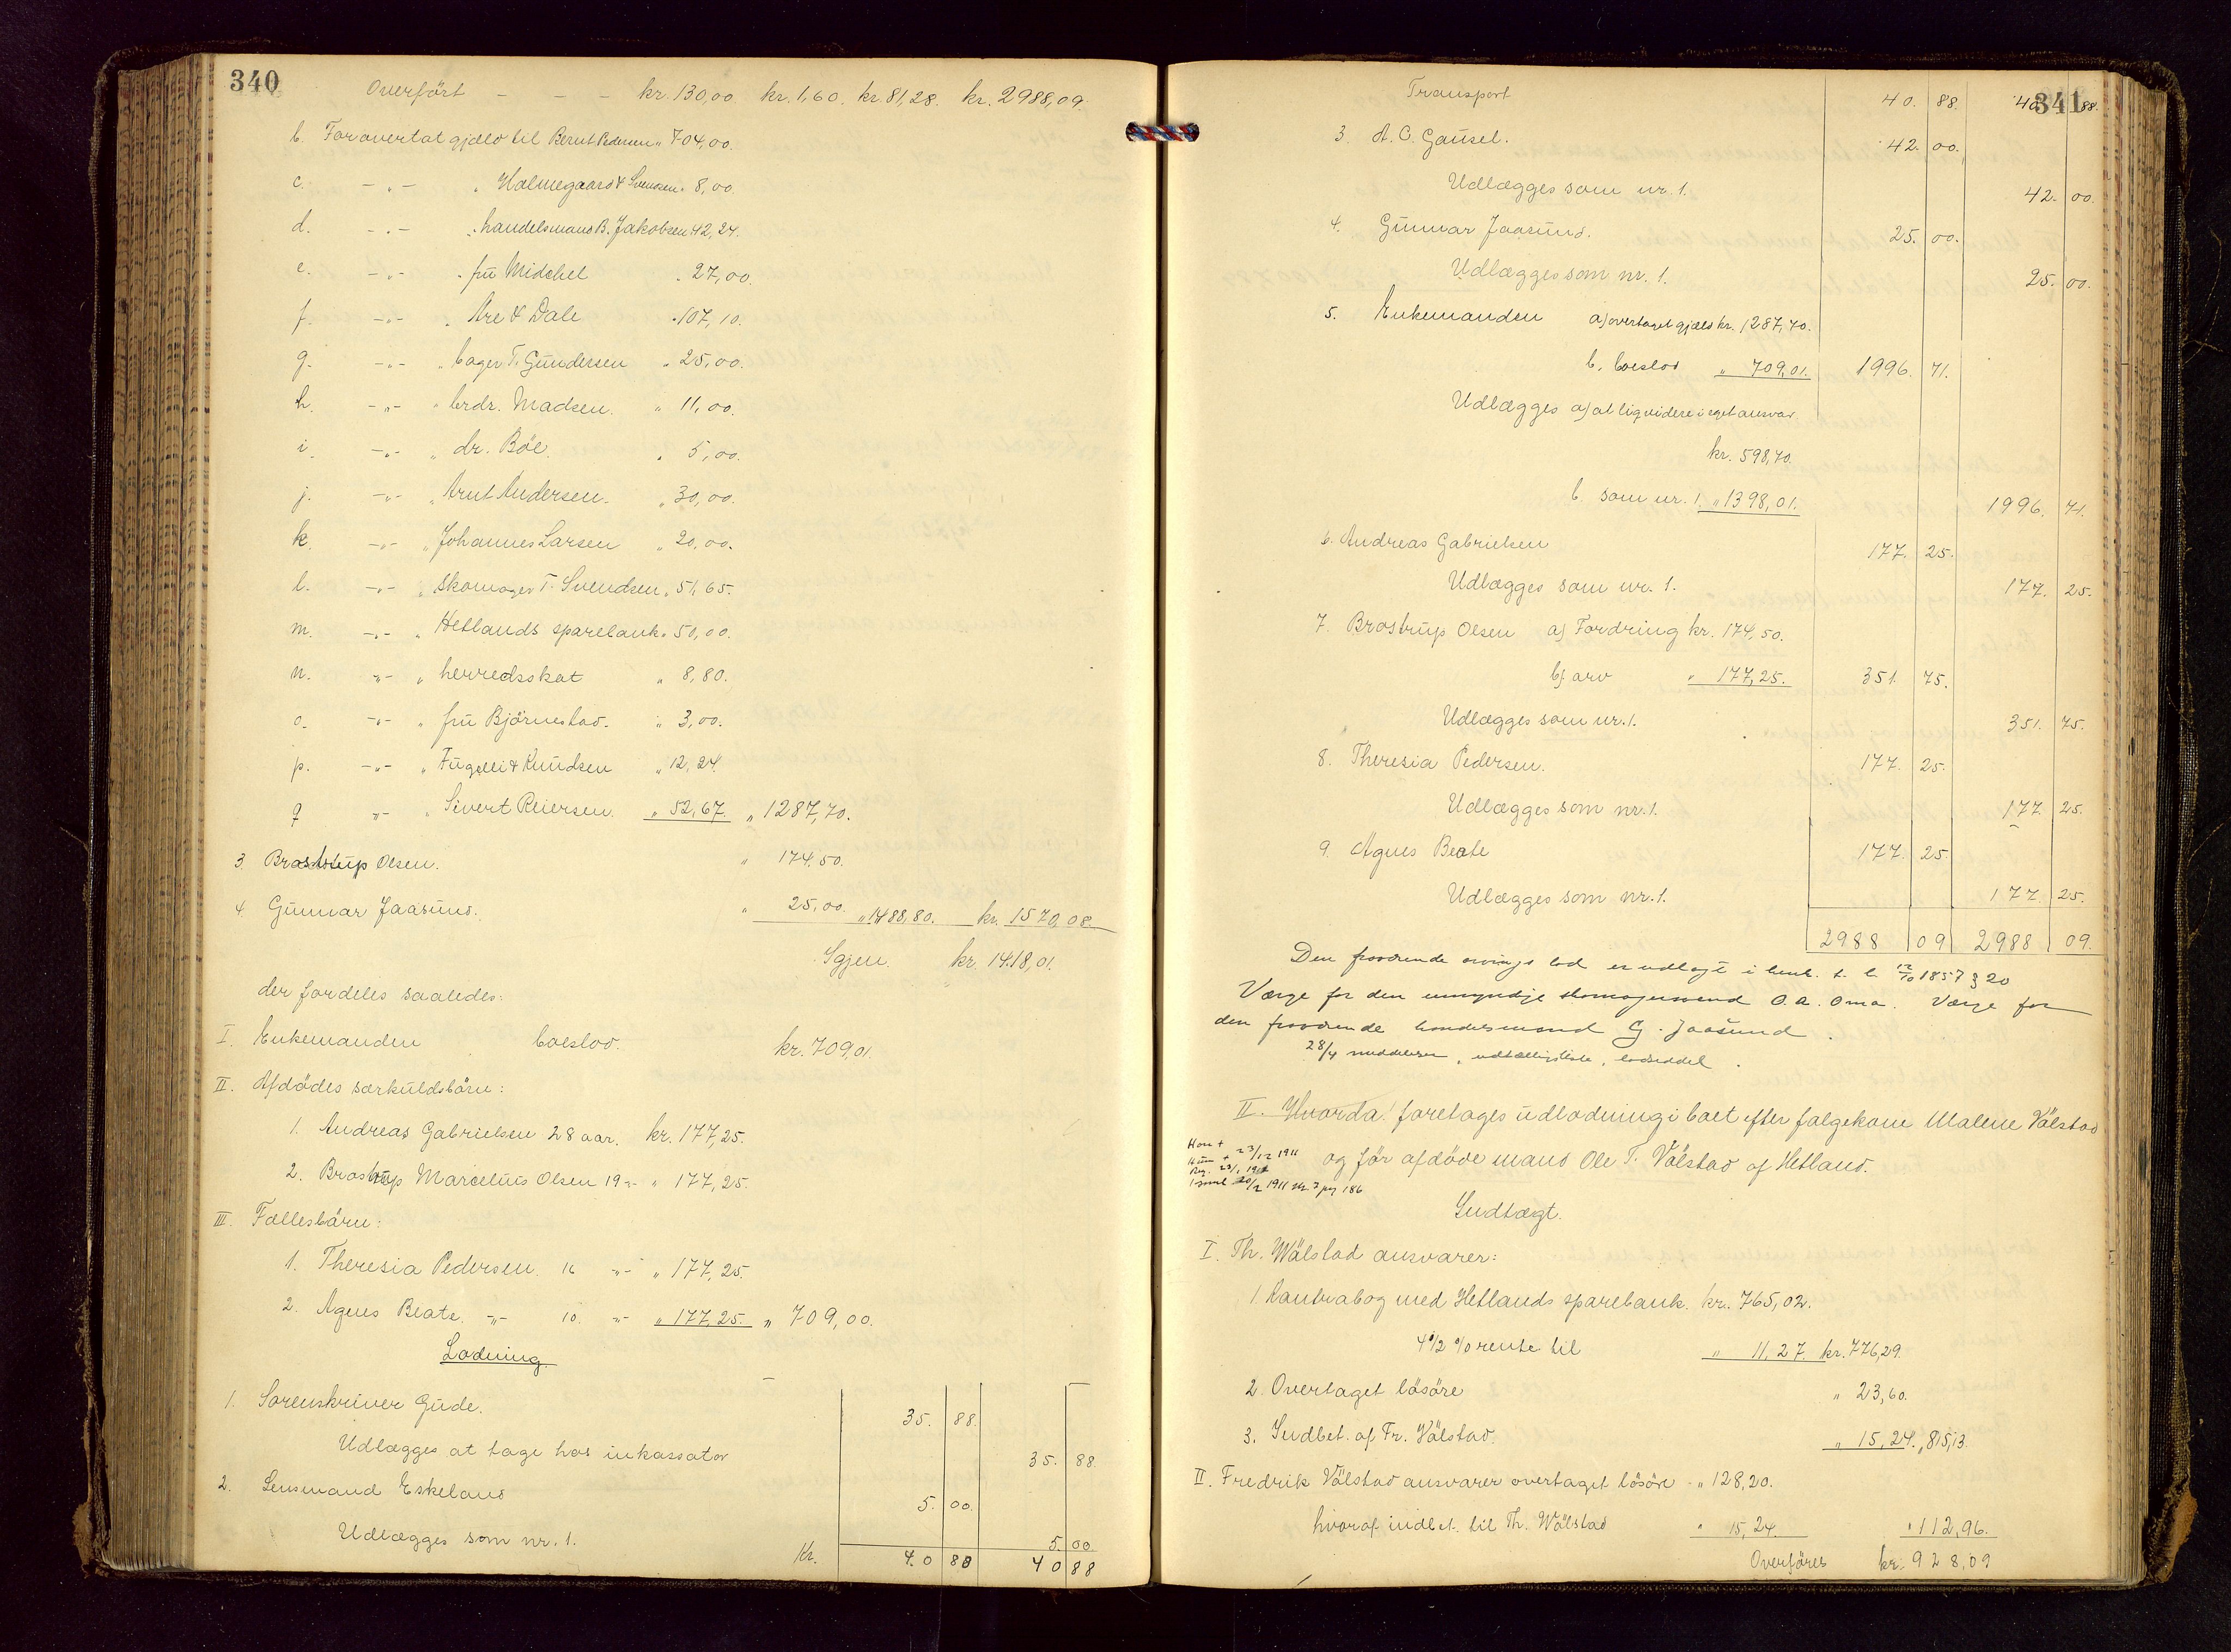 340
Overført - - - kr. 130,00. kr. 1,60. kr. 81,28. kr. 2988,09.
b. For overtat gjæld til Bernt Pedersen " 704,00.
c. - " - " Holmegaard & Svendsen " 8,00.
d. - " - " handelsmand B. Jakobsen 42,24.
e. - " - " fru Midchel " 27,00.
f. - " - " Are & Dale " 107,10.
g. - " - " bager T. Gundersen " 25,00.
h. - " - " brdr. Madsen. " 11,00.
i. - " - " dr. Böe. " 5,00.
j. - " - " Arnt Andersen. " 30,00.
k. - " - " Johannes Larsen " 20,00.
l. - " - " skomager T. Svendsen " 51,65.
m. - " - " Hetlands sparebank " 50,00.
n. " - " herredsskat " 8,80.
o. - " - " fru Björnestad. " 3,00.
p. - " - " Fugelli & Knudsen " 12,24.
q " - " Sivert Reiersen. " 52,67. " 1287,70.
3. Brostrup Olsen. " 174,50.
4. Gunnar Jaasund. " 25,00. " 1488,80. kr. 1570,08.
Igjen. kr. 1418,01.
der fordeles saaledes:
I. Enkemanden boeslod. kr. 709,01.
II. Afdödes særkuldsbörn:
1. Andreas Gabrielsen 28 aar. kr. 177,25.
2. Brostrup Marcelius Olsen 19 - " - " 177,25.
III. Fællesbörn:
1. Theresia Pedersen. 16 - " - " 177,25.
2. Agnes Beate. - " - 10. - " - " 177,25. " 709,00.
Lodning.
1. Sorenskriver Gude. 35. 88.
Udlægges at tage hos inkassator 35. 88.
2. Lensmand Eskeland 5. 00.
Udlægges som nr. 1. 5. 00.
Kr. 40 88 40 88
341
Transport 40. 88. 40. 88.
3. A. C. Gausel. 42. 00.
Udlægges som nr. 1. 42. 00.
4. Gunnar Jaasund. 25. 00.
Udlægges som nr. 1. 25. 00.
5. Enkemanden a) overtaget gjæld kr. 1287,70.
b. boeslod " 709,01. 1996. 71.
Udlægges a) at liqvidere i eget ansvar
kr. 598,70.
b. som nr. 1. " 1398,01. 1996. 71.
6. Andreas Gabrielsen 177. 25.
Udlægges som nr. 1. 177. 25.
7. Brostrup Olsen a) Fordring kr. 174,50.
b) arv " 177,25. 351. 75.
Udlægges som nr. 1. 351. 75.
8. Theresia Pedersen. 177. 25.
Udlægges som nr. 1. 177. 25.
9. Agnes Beate 177. 25.
Udlægges som nr. 1. 177. 25.
2988 09 2988 09.
Den fraværende arvings lod er udlagt i henh. t. l. 12/10 1857 § 20
Værge for den umyndige skomagersvend O. A. Oma. Værge for
den fraværende handelsmand G. Jaasund.
28/4 meddelser, udtællingsliste, lodseddel.
II. Hvorda foretages udlodning i boet efter følgekone Malene Völstad
og før afdöde mand Ole T. Völstad af Hetland.
Hon +
+ 23/12 1911
Reg. 23/1 1911
20/2 1911 pg 186
Indtægt.
I. Th. Wölstad ansvarer:
1. Kontrabog med Hetlands sparebank. kr. 765,02.
4 1/2 % rente til " 11,27. kr. 776,29.
2. Overtaget lösöre " 23,60.
3. Indbet. af Fr. Völstad. " 15,24. " 815,13.
II. Fredrik Völstad ansvarer overtaget lösöre - " 128,20.
hvoraf indbet. til Th. Wölstad " 15,24. " 112,96.
Overføres kr. 928,09